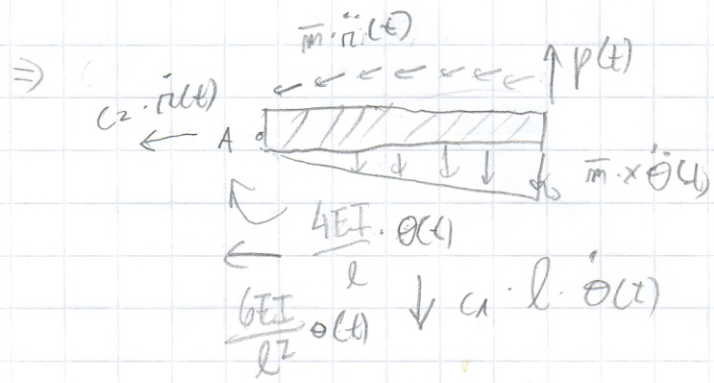 ⇒ m̄·ü(t)
p(t)
c₂·u̇(t)
A
m̄·x·θ̈(t)
4EI/l · θ(t)
6EI/l² θ(t)
c₁·l·θ̇(t)